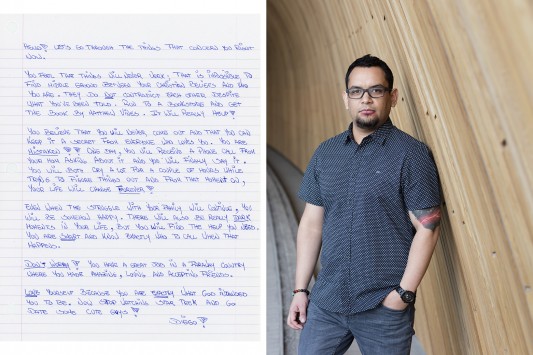 HELLO! LET'S GO THROUGH THE THINGS THAT CONCERN YOU RIGHT
NOW.
YOU FEEL THAT THINGS WILL NEVER WORK, THAT IS IMPOSSIBLE TO
FIND MIDDLE GROUND BETWEEN YOUR CHRISTIAN BELIEFS AND WHO
YOU ARE. THEY DO NOT CONTRADICT EACH OTHER DESPITE
WHAT YOU'VE BEEN TOLD. RUN TO A BOOKSTORE AND GET
THE BOOK BY MATTHEW VINES. IT WILL REALLY HELP!
YOU BELIEVE THAT YOU WILL NEVER COME OUT AND THAT YOU CAN
KEEP IT A SECRET FROM EVERYONE WHO LOVES YOU. YOU ARE
MISTAKEN! ONE DAY, YOU WILL RECEIVE A PHONE CALL FROM
YOUR MOM ASKING ABOUT IT AND YOU WILL FINALLY SAY IT.
YOU WILL BOTH CRY A FOR A COUPLE OF HOURS WHILE
TRYING TO FIGURE THINGS OUT AND FROM THAT MOMENT ON,
YOUR LIFE WILL CHANGE FOREVER!
EVEN WHEN THE STRUGGLE WITH YOUR FAMILY WILL CONTINUE, YOU
WILL BE SOMEHOW HAPPY. THERE WILL ALSO BE REALLY DARK
MOMENTS IN YOUR LIFE, BUT YOU WILL FIND THE HELP YOU NEED.
YOU ARE SMART AND KNOW EXACTLY WHO TO CALL WHEN THAT
HAPPENS.
DON'T WORRY! YOU HAVE A GREAT JOB IN A FARAWAY COUNTRY
WHERE YOU HAVE AMAZING, LOVING AND ACCEPTING FRIENDS.
LOVE YOURSELF BECAUSE YOU ARE EXACTLY WHAT GOD INTENDED
YOU TO BE. NOW STOP WATCHING STAR TREK AND GO
DATE SOME CUTE GUYS!
DIEGO!